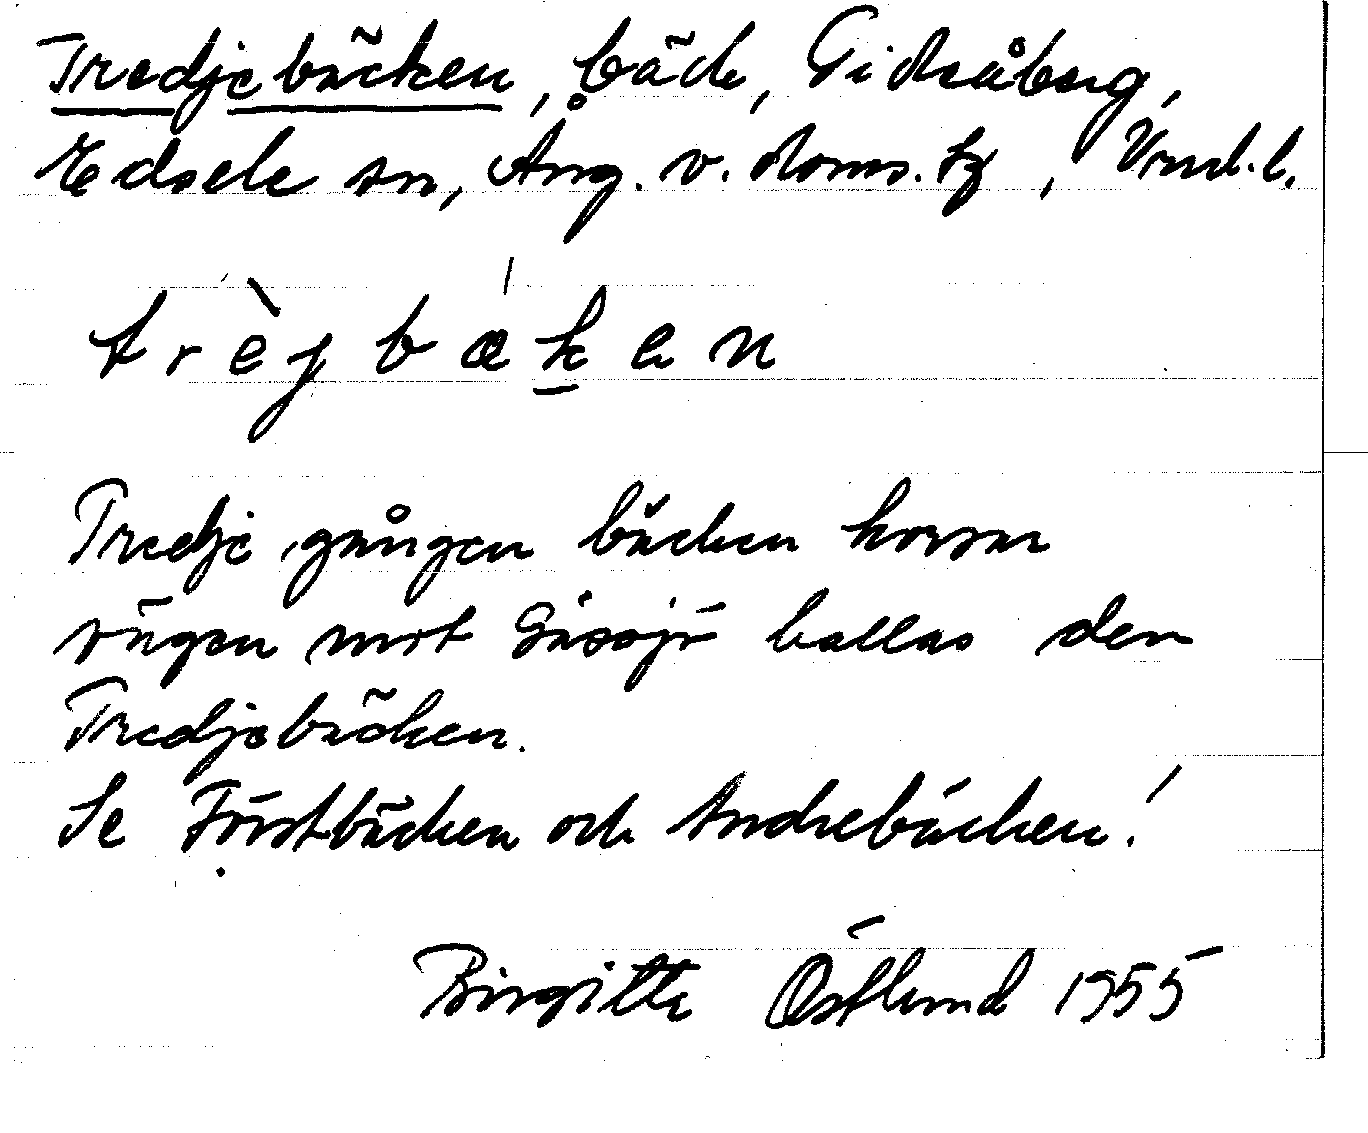 Tredjebäcken, bäck, Gideåberg,
Edsele sn, Ång. v. doms. tg, Vnrl. l.
trèjbæken
Tredje gången bäcken korsar
vägen mot Gåssjö kallas den
Tredjebäcken.
Se Förstbäcken och Andrebäcken!
Birgitta Östlund 1955